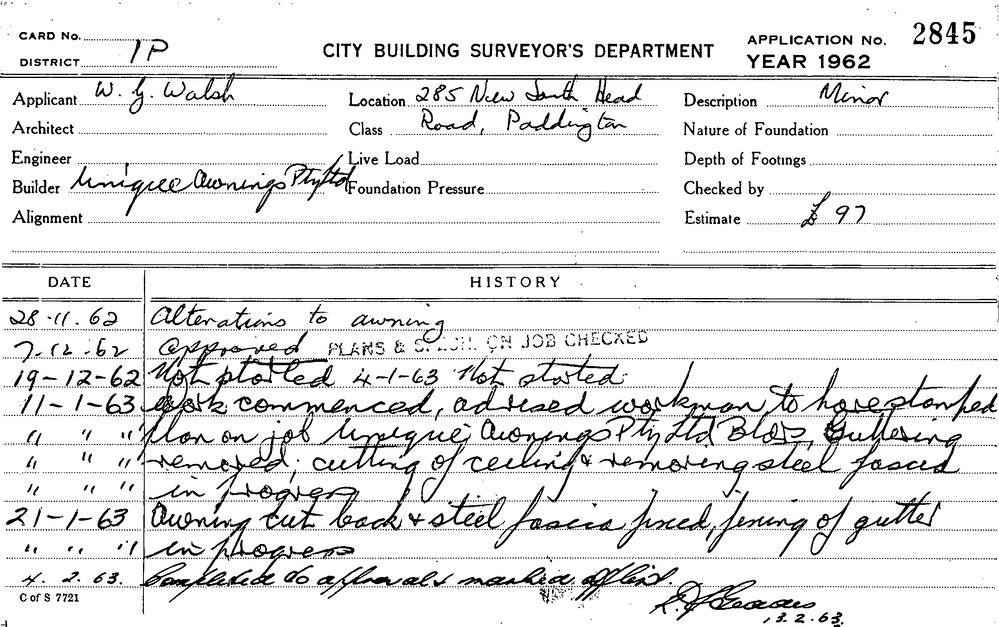 CARD No.
DISTRICT 1P
CITY BUILDING SURVEYOR'S DEPARTMENT
APPLICATION No. 2845
YEAR 1962
Applicant W. G. Walsh
Location 285 New South Head
Description Minor
Architect
Class Road, Paddington
Nature of Foundation
Engineer
Live Load
Depth of Footings
Builder Unique Awnings Pty Ltd
Foundation Pressure
Checked by
Alignment
Estimate £ 97
DATE HISTORY
28-11-62 Alterations to awning
7-12-62 approved PLANS & SPECN. ON JOB CHECKED
19-12-62 Not started 4-1-63 Not started
11-1-63 work commenced, advised workman to have stamped
" " " plan on job Unique Awnings Pty Ltd Bldrs, Guttering
" " " removed, cutting of ceiling & removing steel fascia
" " " in progress
21-1-63 Awning cut back & steel fascia fixed, fixing of gutter
" " " in progress
4. 2. 63. Completed to approvals marked off list
C of S 7721
13.2.63.